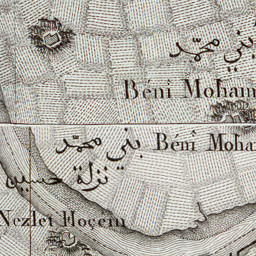 بني محمد
Béni Moham
بني محمد Béni Moha
نزلة حسين
Nezlet Hoçein